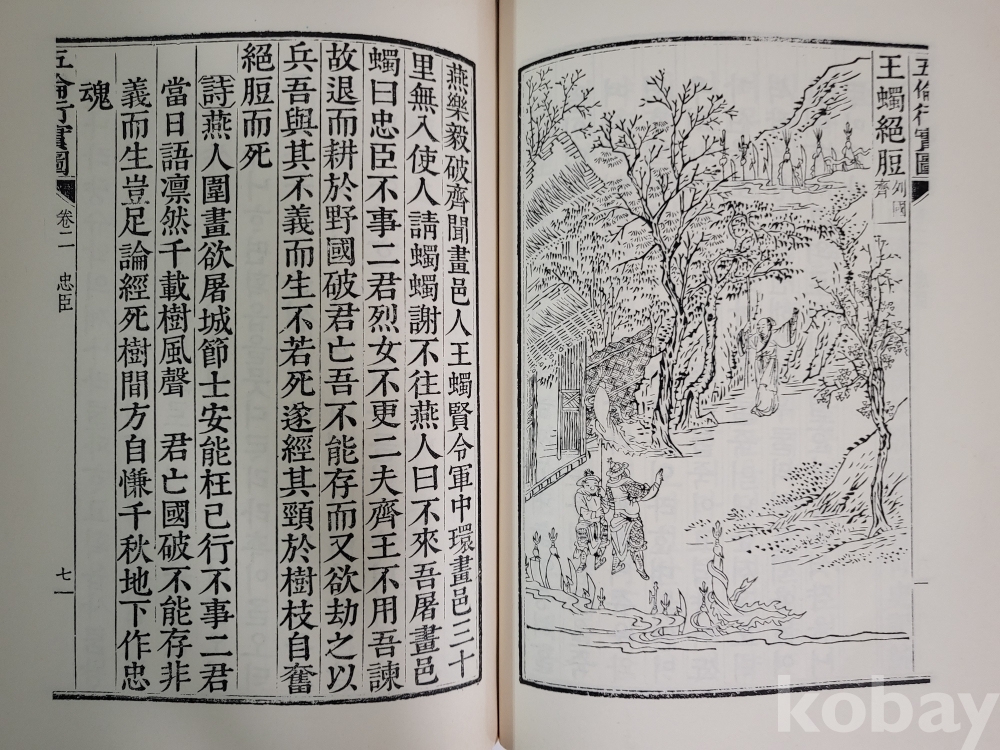 五倫行實圖
王蠋絕脰
列國
齊
燕樂毅破齊聞畫邑人王蠋賢令軍中環畫邑三十
里無入使人請蠋蠋謝不往燕人曰不來吾屠畫邑
蠋曰忠臣不事二君烈女不更二夫齊王不用吾諫
故退而耕於野國破君亡吾不能存而又欲劫之以
兵吾與其不義而生不若死遂經其頸於樹枝自奮
絕脰而死
詩燕人圍畫欲屠城節士安能枉已行不事二君
當日語凛然千載樹風聲 君亡國破不能存非
義而生豈足論經死樹間方自慊千秋地下作忠
魂
五倫行實圖
卷二 忠臣
七
kobay